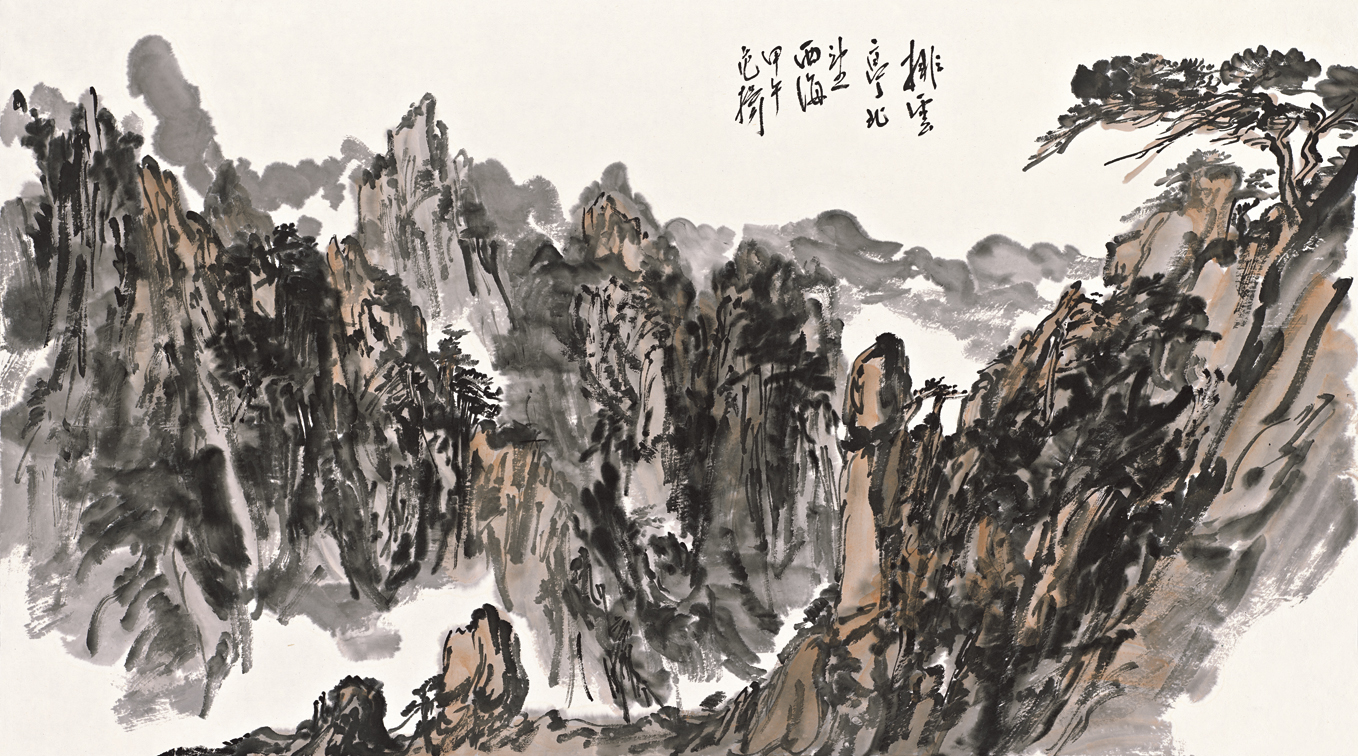 排雲
亭北
望
西海
甲午
范揚